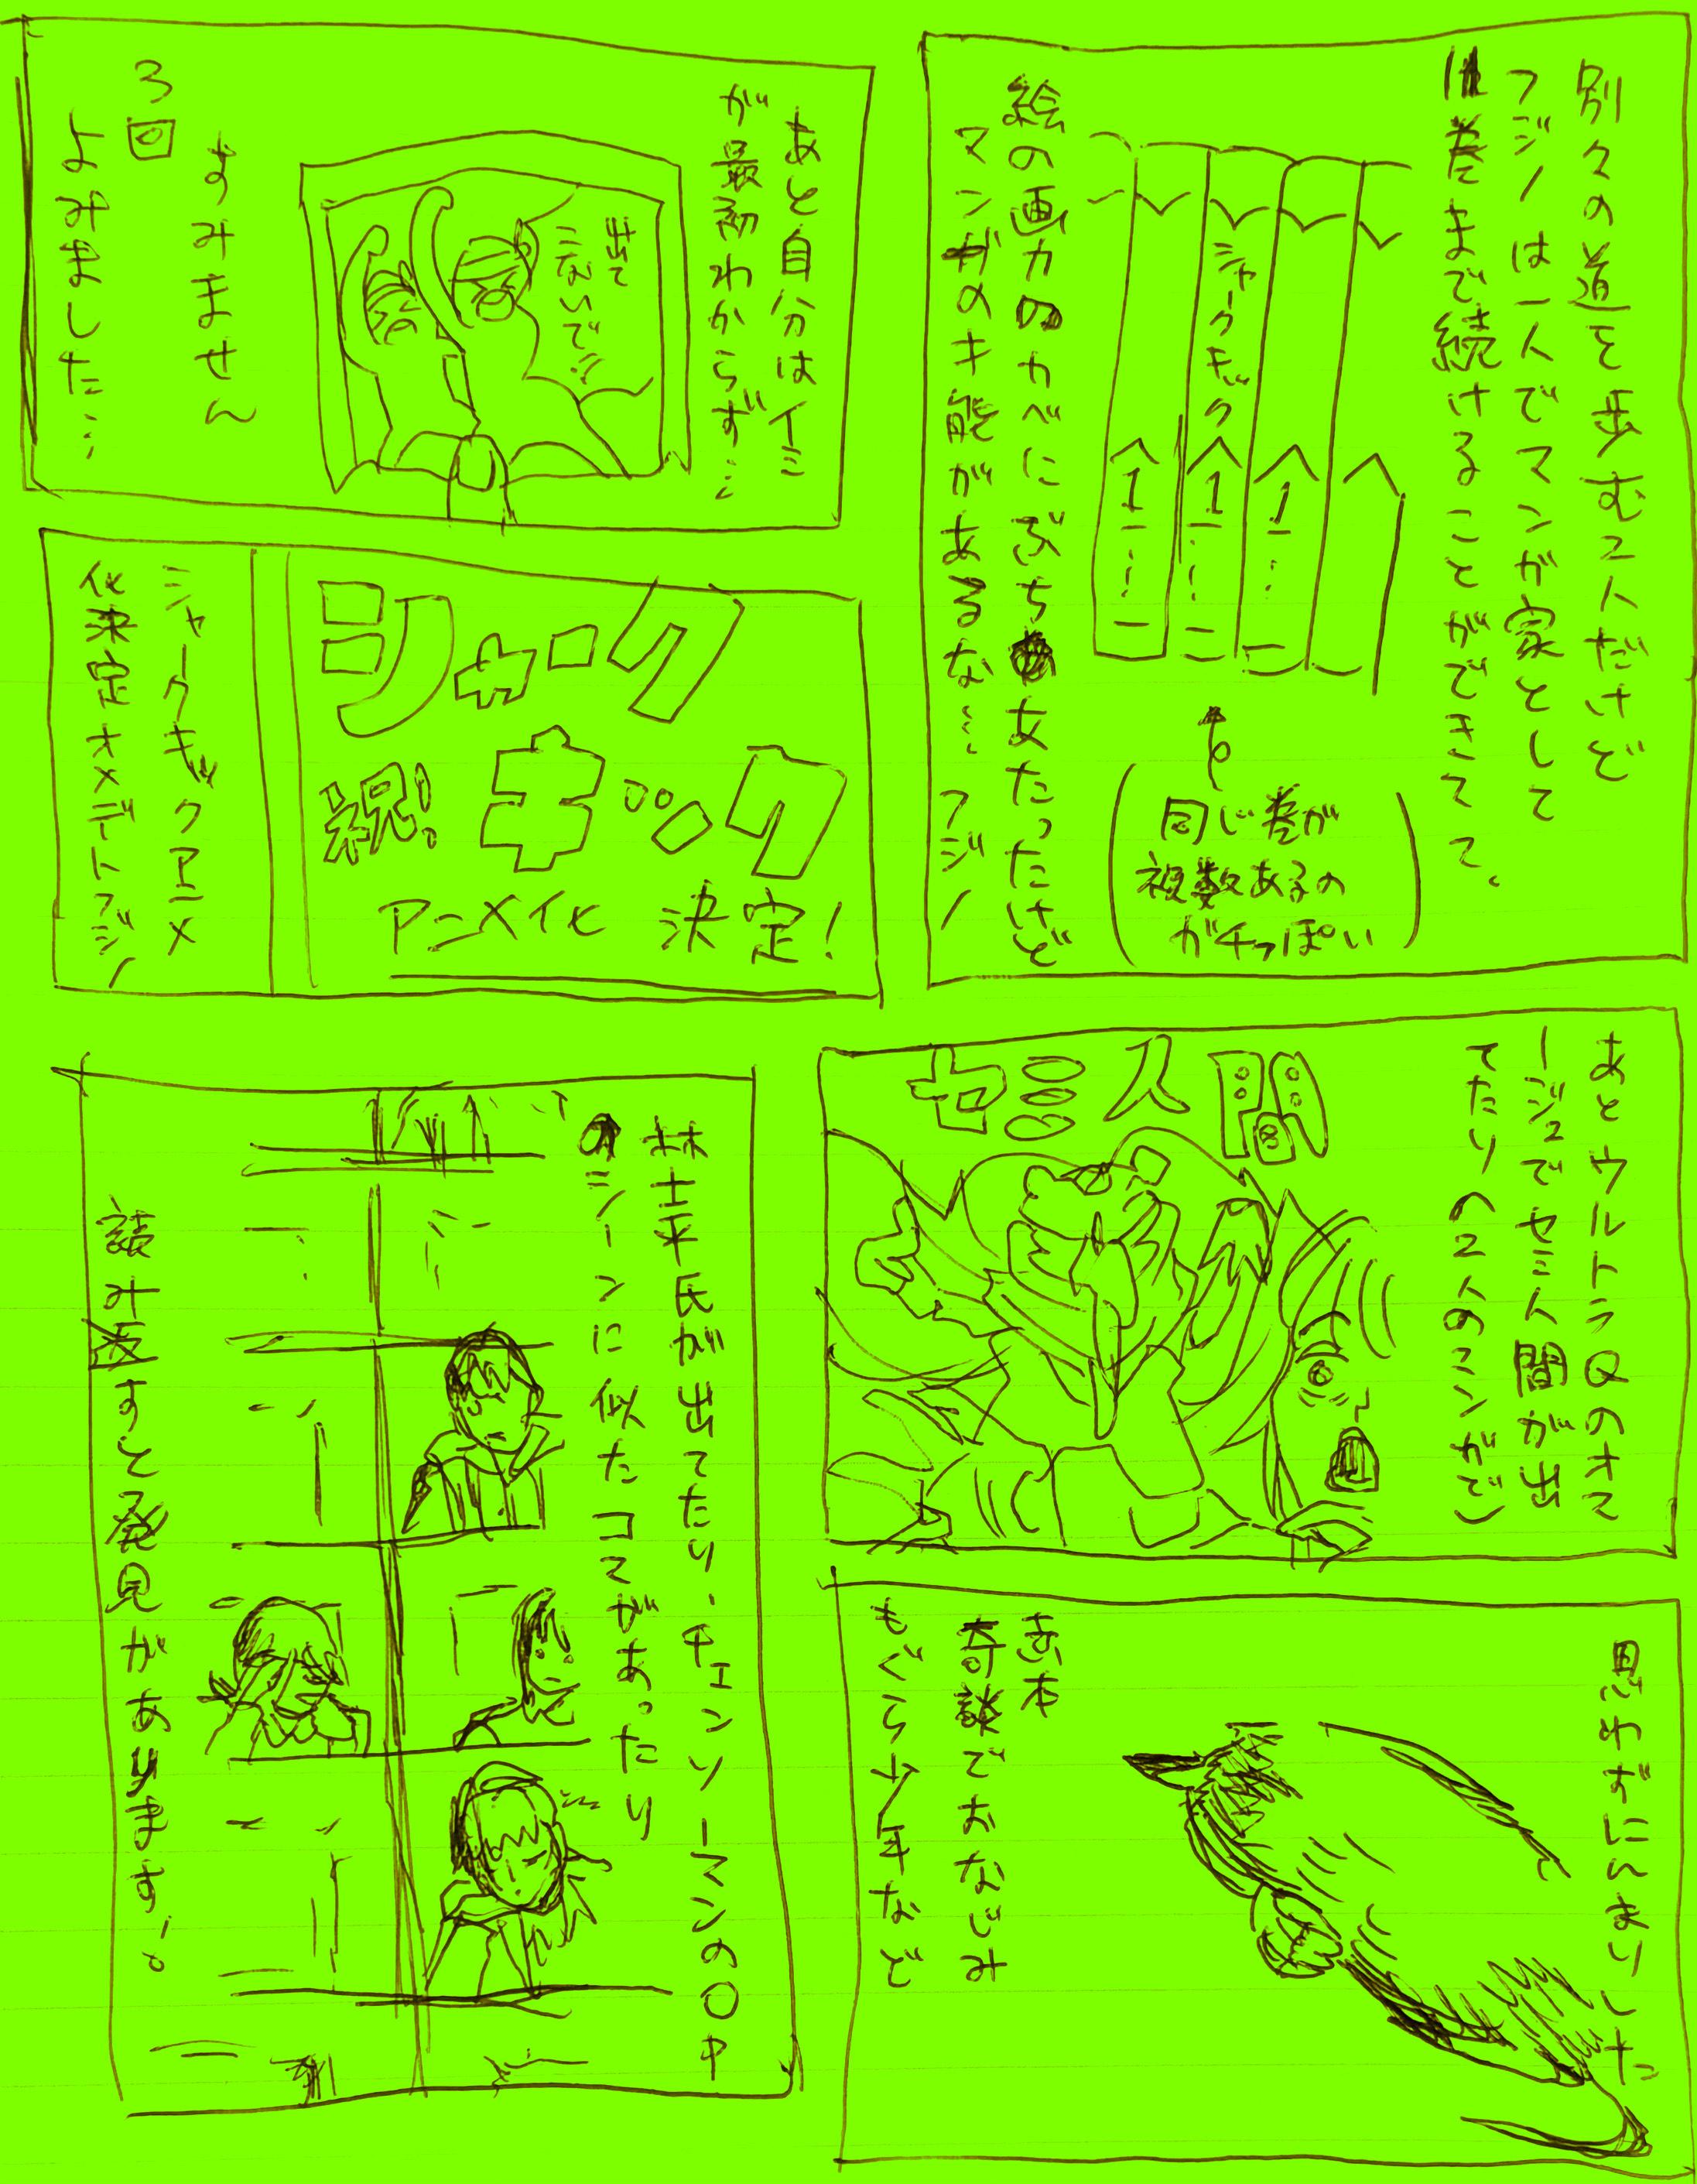 別々の道を歩む2人だけど
フジノは一人でマンガ家として
11巻まで続けることができてて、
シャークキック
1
1
1
同じ巻が
複数あるの
ガチっぽい
絵の画力のカベにぶちあたったけど
マンガのオ能があるな… フジノ
あと自分はイミ
が最初わからず…
出て
こないで!!
すみません
3回
よみました…
シャーク
キック
祝!
アニメ化 決定!
シャークキックアニメ
化決定オメデトフジノ
あとウルトラQのオマ
ージュでセミ人間が出
てたり(2人のマンガで)
セミ人間
思わずにんまりした
赤本
奇談でおなじみ
もぐら少年など
林士平氏が出てたり、チェンソーマンの〇中
のシーンに似たコマがあったり
読み返すと発見があります。